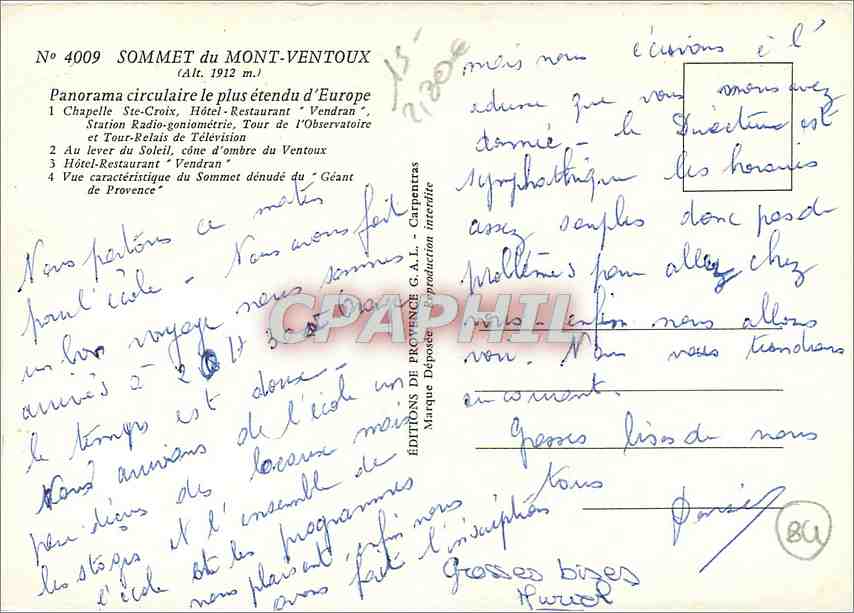 Nº 4009 SOMMET du MONT-VENTOUX
(Alt. 1912 m.)
Panorama circulaire le plus étendu d'Europe
1 Chapelle Ste-Croix, Hôtel-Restaurant "Vendran",
Station Radio-goniométrie, Tour de l'Observatoire
et Tour-Relais de Télévision
2 Au lever du Soleil, cône d'ombre du Ventoux
3 Hôtel-Restaurant "Vendran"
4 Vue caractéristique du Sommet dénudé du "Géant
de Provence"
Nous partons ce matin
pour l'école - Nous avons fait
un bon voyage nous sommes
arrivés à 2 H 30
le temps est doux -
Nous arrivons de l'école un
peu déçus des locaux mais
les stages et l'ensemble de
l'école et les programmes
nous plaisent enfin nous
avons fait l'inscription
EDITIONS DE PROVENCE G.A.L. - Carpentras
Marque Déposée - Reproduction interdite
15-
2,80€
mais nous écrivons à l'
adresse que vous nous avez
donnée - le Directeur est
symphathique les horaires
assez souples donc pas de
problèmes pour aller chez
vous - enfin nous allons
voir. Nous vous tiendrons
au courant.
Grosses bises de nous
tous
Grosses bizes
Muriel
84
CPAPHIL